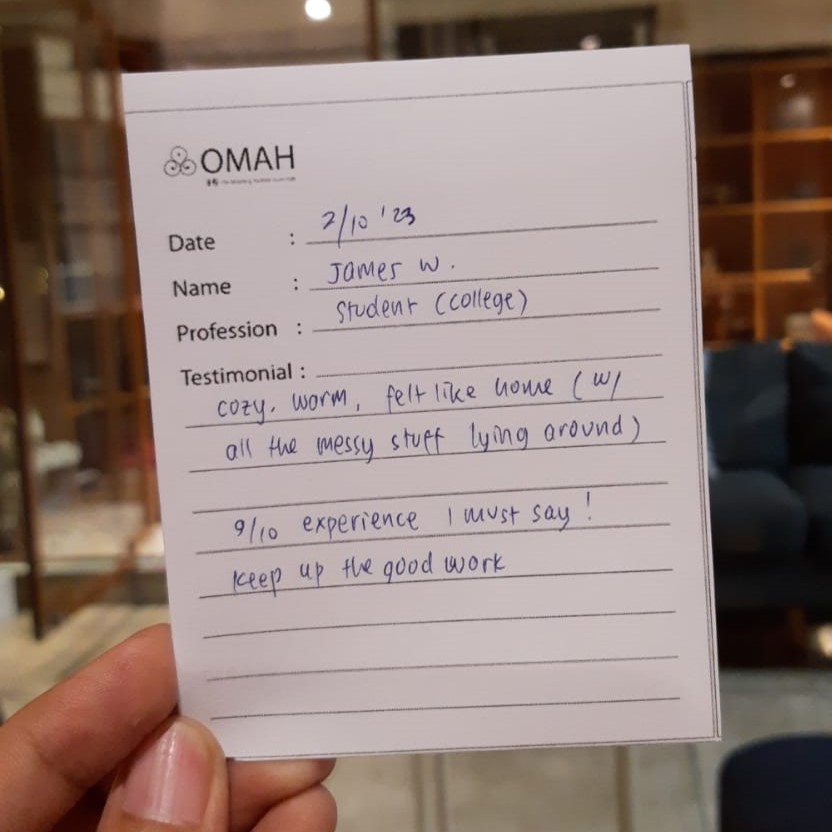 OMAH
Date : 2/10 '23
Name : James W.
Profession : Student (college)
Testimonial :
cozy, warm, felt like home (w/
all the messy stuff lying around)
9/10 experience I must say!
keep up the good work